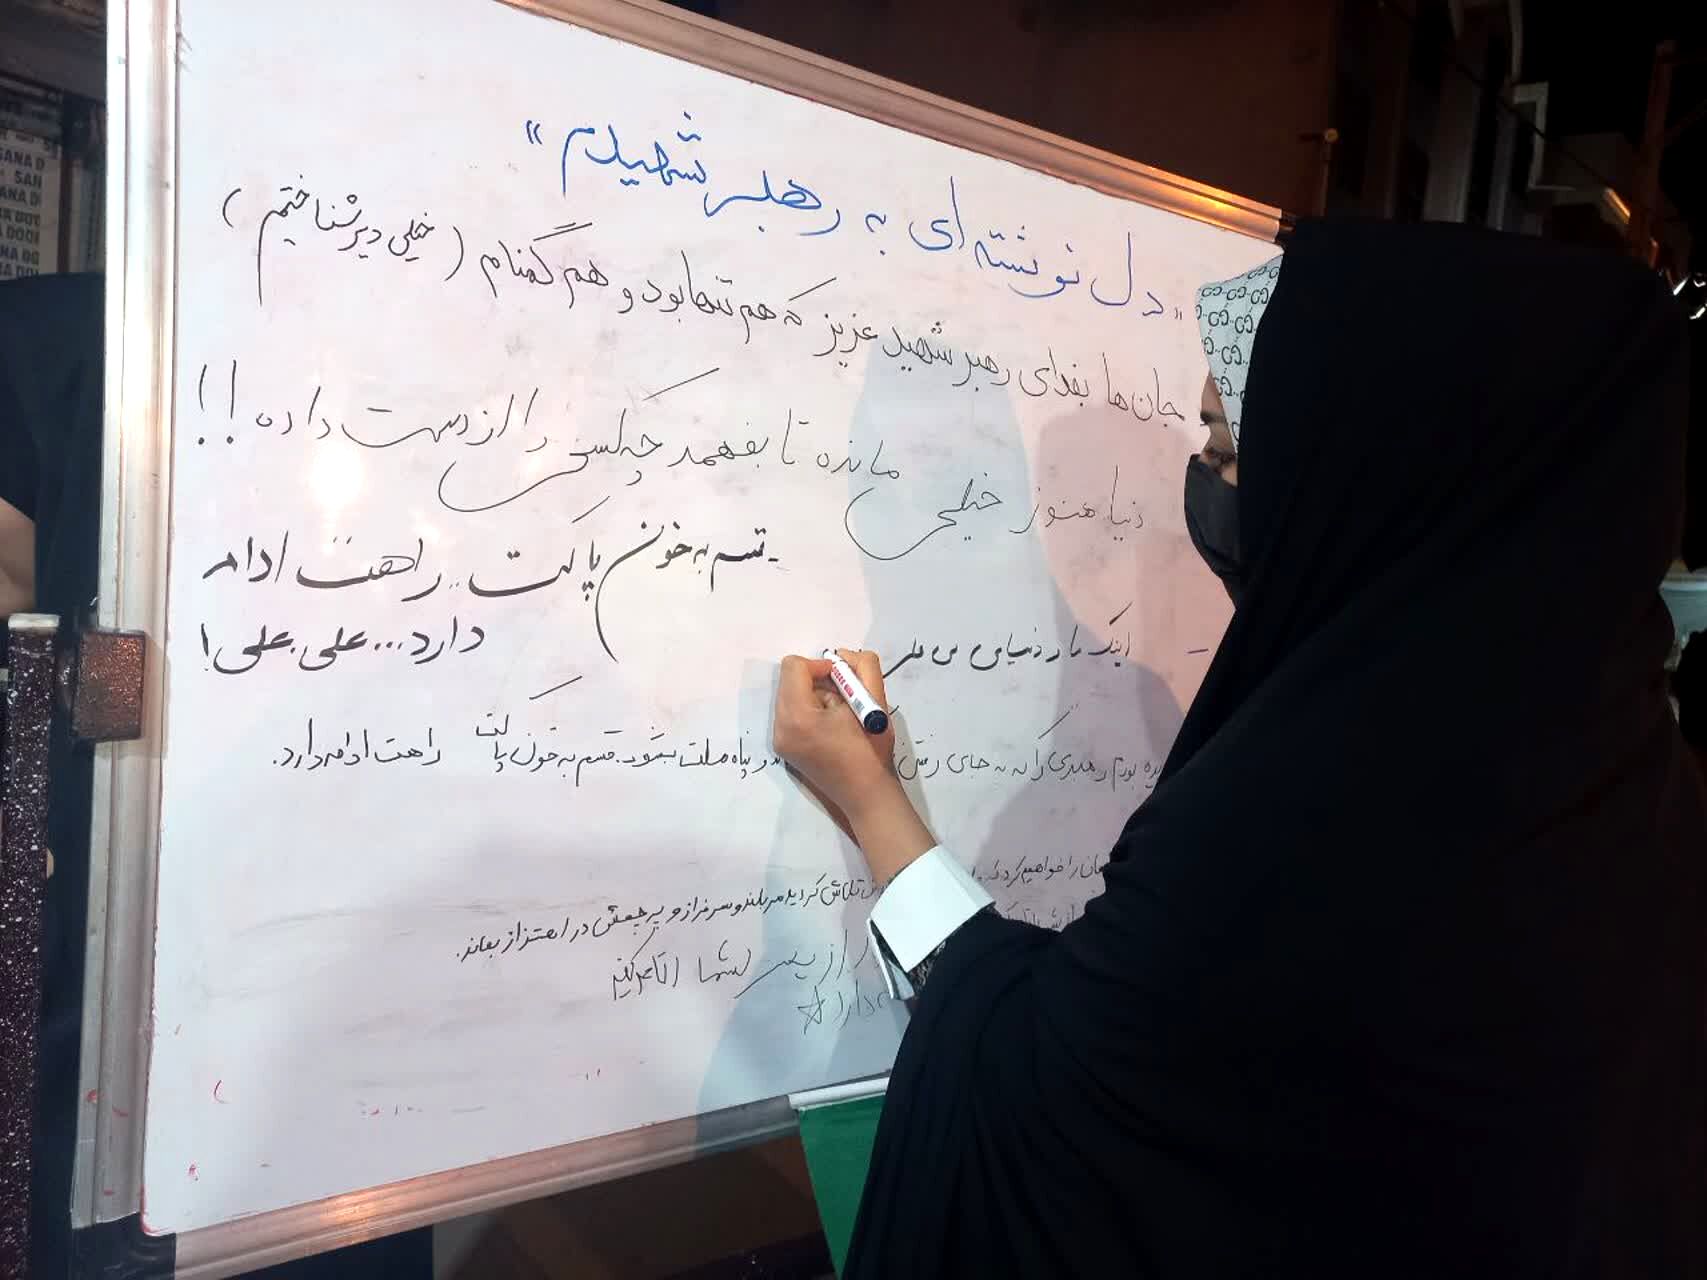 SANA D
SAN
ANA DI
« دل نوشته‌ای به رهبر شهیدم »
جان‌ها بفدای رهبر شهید عزیز که هم تنها بود و هم گمنام ( خیلی دیر شناختیم )
دنیا هنوز خیلی مانده تا بفهمد چه کسی را از دست داده !!
- قسم به خون پاکت .. راهت ادامه
دارد... علی. علی !
- اینک ما و دنیای بی علی
بودم رهبری را که به جای رفتن پناه ملت بشود. قسم به خون پاکت راهت ادامه دارد.
را خواهیم کرد
تلاش کردید سربلند و سرفراز و پرچمش در اهتزاز بماند.
از پسر شما